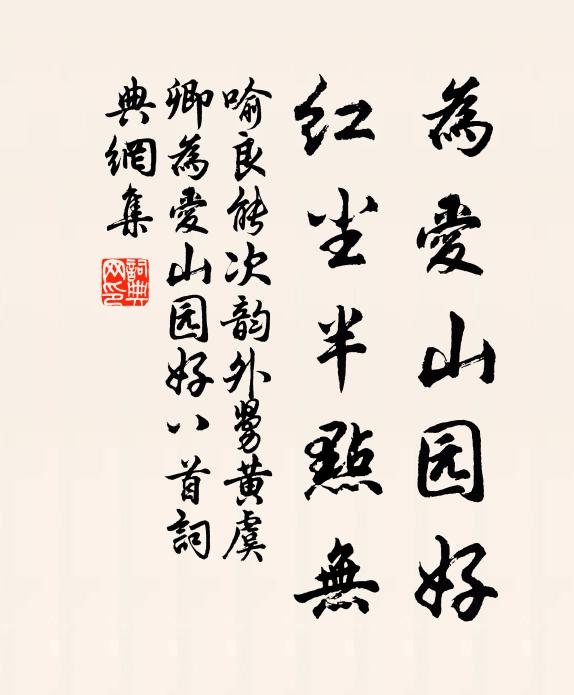 為愛山园好
红尘半點無
喻良能次韵外舅黄虞
卿為愛山园好八首詞
典網集
詞典
网印